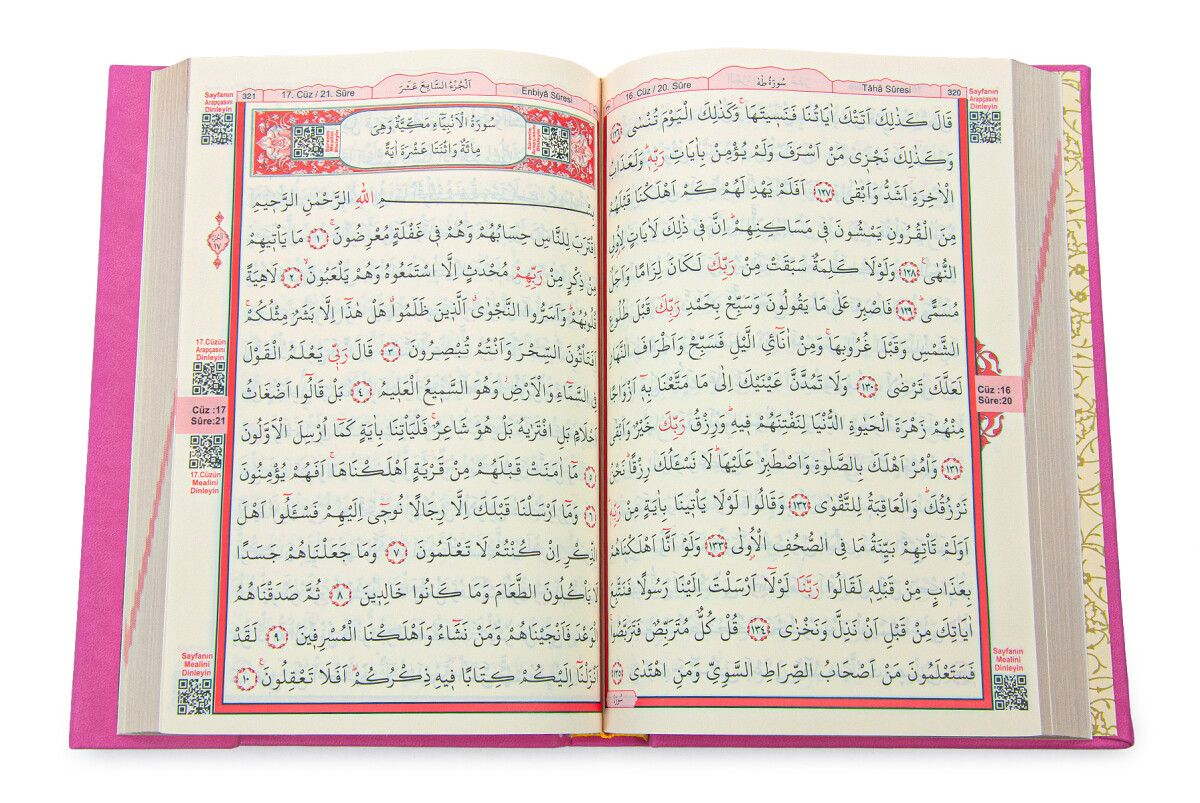 320
Tâhâ Sûresi
سُورَةُ طٰهٰ
16. Cüz / 20. Sûre
Sayfanın
Arapçasını
Dinleyin
قَالَ كَذٰلِكَ اَتَتْكَ اٰيَاتُنَا فَنَسٖيتَهَاۚ وَكَذٰلِكَ الْيَوْمَ تُنْسٰى ﴿١٢٦﴾
وَكَذٰلِكَ نَجْزٖى مَنْ اَسْرَفَ وَلَمْ يُؤْمِنْ بِاٰيَاتِ رَبِّهٖۜ وَلَعَذَابُ
الْاٰخِرَةِ اَشَدُّ وَاَبْقٰى ﴿١٢٧﴾ اَفَلَمْ يَهْدِ لَهُمْ كَمْ اَهْلَكْنَا قَبْلَهُمْ
مِنَ الْقُرُونِ يَمْشُونَ فٖى مَسَاكِنِهِمْۜ اِنَّ فٖى ذٰلِكَ لَاٰيَاتٍ لِاُولِى
النُّهٰىۚ ﴿١٢٨﴾ وَلَوْلَا كَلِمَةٌ سَبَقَتْ مِنْ رَبِّكَ لَكَانَ لِزَامًا وَاَجَلٌ
مُسَمًّىۜ ﴿١٢٩﴾ فَاصْبِرْ عَلٰى مَا يَقُولُونَ وَسَبِّحْ بِحَمْدِ رَبِّكَ قَبْلَ طُلُوعِ
الشَّمْسِ وَقَبْلَ غُرُوبِهَاۚ وَمِنْ اٰنَآئِ الَّيْلِ فَسَبِّحْ وَاَطْرَافَ النَّهَارِ
لَعَلَّكَ تَرْضٰى ﴿١٣٠﴾ وَلَا تَمُدَّنَّ عَيْنَيْكَ اِلٰى مَا مَتَّعْنَا بِهٖٓ اَزْوَاجًا
مِنْهُمْ زَهْرَةَ الْحَيٰوةِ الدُّنْيَا لِنَفْتِنَهُمْ فٖيهِۜ وَرِزْقُ رَبِّكَ خَيْرٌ وَاَبْقٰى
﴿١٣١﴾ وَأْمُرْ اَهْلَكَ بِالصَّلٰوةِ وَاصْطَبِرْ عَلَيْهَاۜ لَا نَسْـَٔلُكَ رِزْقًاۜ نَحْنُ
نَرْزُقُكَۜ وَالْعَاقِبَةُ لِلتَّقْوٰى ﴿١٣٢﴾ وَقَالُوا لَوْلَا يَأْتٖينَا بِاٰيَةٍ مِنْ رَبِّهٖۜ
اَوَلَمْ تَأْتِهِمْ بَيِّنَةُ مَا فِى الصُّحُفِ الْاُولٰى ﴿١٣٣﴾ وَلَوْ اَنَّٓا اَهْلَكْنَاهُمْ
بِعَذَابٍ مِنْ قَبْلِهٖ لَقَالُوا رَبَّنَا لَوْلَٓا اَرْسَلْتَ اِلَيْنَا رَسُولًا فَنَتَّبِعَ
اٰيَاتِكَ مِنْ قَبْلِ اَنْ نَذِلَّ وَنَخْزٰى ﴿١٣٤﴾ قُلْ كُلٌّ مُتَرَبِّصٌ فَتَرَبَّصُواۚ
فَسَتَعْلَمُونَ مَنْ اَصْحَابُ الصِّرَاطِ السَّوِىِّ وَمَنِ اهْتَدٰى ﴿١٣٥﴾
Cüz :16
Sûre:20
Sayfanın
Mealini
Dinleyin
321
17. Cüz / 21. Sûre
اَلْجُزْءُ السَّابِعَ عَشَرَ
Enbiyâ Sûresi
Sayfanın
Arapçasını
Dinleyin
سُورَةُ الْاَنْبِيَٓاءِ مَكِّيَّةٌ وَهِىَ
مِائَةٌ وَاثْنَتَا عَشْرَةَ اٰيَةً
بِسْمِ اللّٰهِ الرَّحْمٰنِ الرَّحٖيمِ
اِقْتَرَبَ لِلنَّاسِ حِسَابُهُمْ وَهُمْ فٖى غَفْلَةٍ مُعْرِضُونَۚ ﴿١﴾ مَا يَأْتٖيهِمْ
مِنْ ذِكْرٍ مِنْ رَبِّهِمْ مُحْدَثٍ اِلَّا اسْتَمَعُوهُ وَهُمْ يَلْعَبُونَۙ ﴿٢﴾ لَاهِيَةً
قُلُوبُهُمْۜ وَاَسَرُّوا النَّجْوٰىۗ اَلَّذٖينَ ظَلَمُواۗ هَلْ هٰذَٓا اِلَّا بَشَرٌ مِثْلُكُمْۚ
اَفَتَأْتُونَ السِّحْرَ وَاَنْتُمْ تُبْصِرُونَ ﴿٣﴾ قَالَ رَبّٖى يَعْلَمُ الْقَوْلَ
فِى السَّمَٓاءِ وَالْاَرْضِۘ وَهُوَ السَّمٖيعُ الْعَلٖيمُ ﴿٤﴾ بَلْ قَالُٓوا اَضْغَاثُ
اَحْلَامٍ بَلِ افْتَرٰيهُ بَلْ هُوَ شَاعِرٌۚ فَلْيَأْتِنَا بِاٰيَةٍ كَمَٓا اُرْسِلَ الْاَوَّلُونَ
﴿٥﴾ مَٓا اٰمَنَتْ قَبْلَهُمْ مِنْ قَرْيَةٍ اَهْلَكْنَاهَاۚ اَفَهُمْ يُؤْمِنُونَ
﴿٦﴾ وَمَٓا اَرْسَلْنَا قَبْلَكَ اِلَّا رِجَالًا نُوحٖٓى اِلَيْهِمْ فَسْـَٔلُٓوا اَهْلَ
الذِّكْرِ اِنْ كُنْتُمْ لَا تَعْلَمُونَ ﴿٧﴾ وَمَا جَعَلْنَاهُمْ جَسَدًا
لَا يَأْكُلُونَ الطَّعَامَ وَمَا كَانُوا خَالِدٖينَ ﴿٨﴾ ثُمَّ صَدَقْنَاهُمُ
الْوَعْدَ فَاَنْجَيْنَاهُمْ وَمَنْ نَشَٓاءُ وَاَهْلَكْنَا الْمُسْرِفٖينَ ﴿٩﴾ لَقَدْ
اَنْزَلْنَٓا اِلَيْكُمْ كِتَابًا فٖيهِ ذِكْرُكُمْۜ اَفَلَا تَعْقِلُونَۚ ﴿١٠﴾
17.Cüzün
Arapçasını
Dinleyin
Cüz :17
Sûre:21
17.Cüzün
Mealini
Dinleyin
Sayfanın
Mealini
Dinleyin